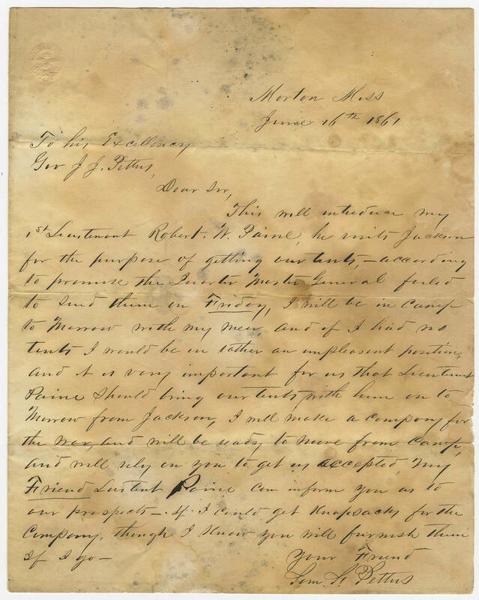 Morton Miss
June 16th 1861
To his Excellency
Gov J. J. Pettus,
Dear Sir,
This will introduce my
1st Lieutenant Robert. W. Paine, he visits Jackson
for the purpose of getting our tents, — according
to promise the Quarter Master General failed
to send them on Friday, I will be in Camp
to Morrow with my men, and if I had no
tents I would be in rather an unpleasent position,
and it is very important for us that Lieutenant
Paine should bring our tents with him on to
Morrow from Jackson, I will make a company for
the War, and will be ready to move from Camp,
and will rely on you to get us accepted, My
Friend Lieutent Paine can inform you as to
our prospects — if I could get Knapsacks for the
Company, though I know you will furnish them
if I go —
Your Friend
Pettus